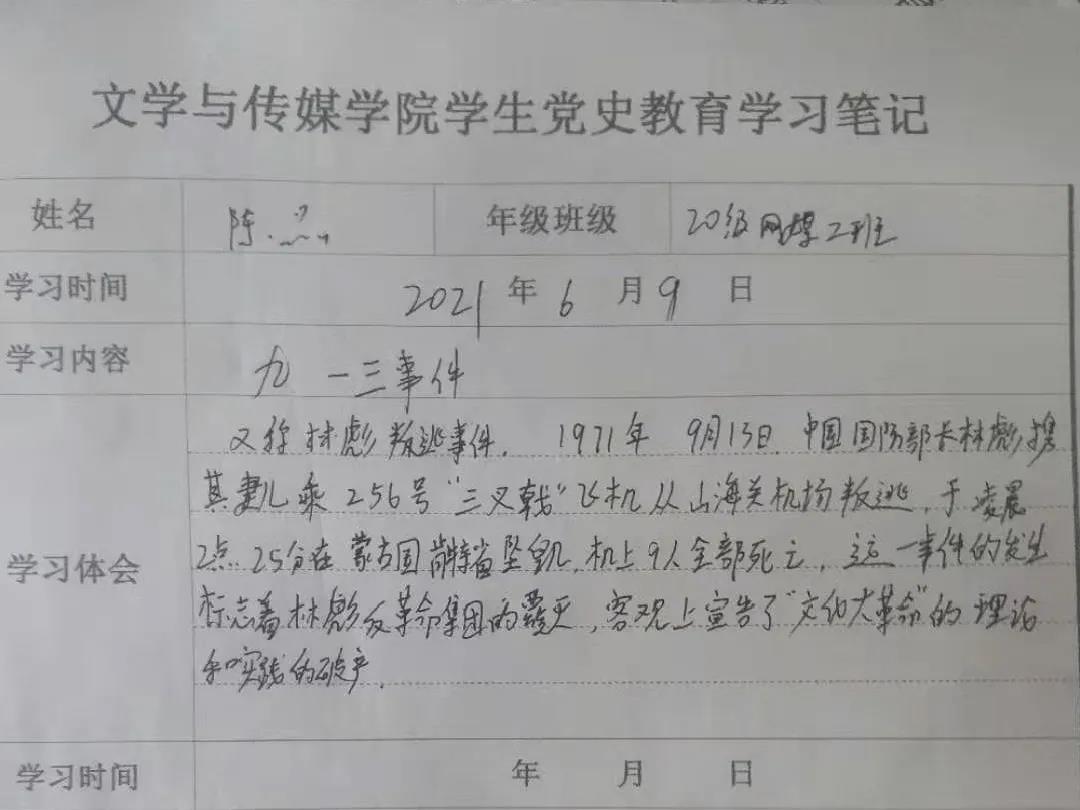 文学与传媒学院学生党史教育学习笔记
姓名 陈 年级班级 20级网媒二班
学习时间 2021年6月9日
学习内容 九一三事件
又称林彪叛逃事件. 1971年 9月13日.中国国防部长林彪携
其妻儿乘256号“三叉戟”飞机从山海关机场叛逃,于凌晨
学习体会 2点25分在蒙古国肯特省坠毁.机上9人全部死亡,这一事件的发生
标志着林彪反革命集团的覆灭,客观上宣告了“文化大革命”的理论
和实践的破产.
学习时间 年 月 日